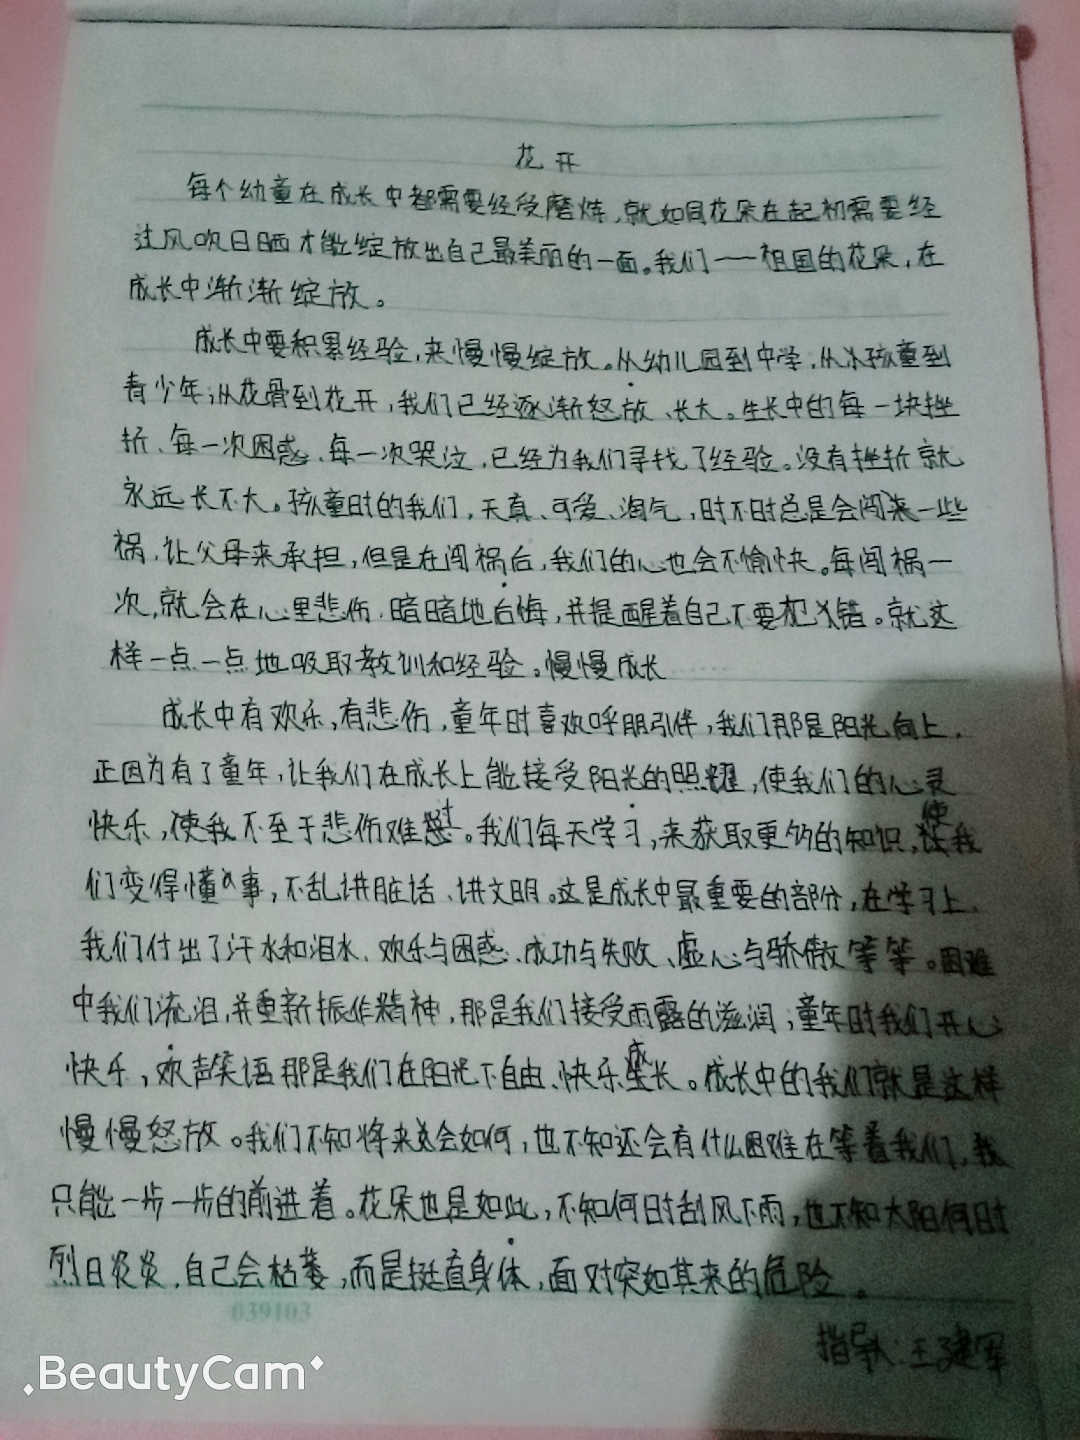 花开
每个幼童在成长中都需要经受磨炼,就如同花朵在起初需要经
过风吹日晒才能绽放出自己最美丽的一面。我们——祖国的花朵,在
成长中渐渐绽放。
成长中要积累经验,来慢慢绽放。从幼儿园到中学,从小孩童到
青少年;从花骨到花开,我们已经逐渐怒放、长大。生长中的每一块挫
折、每一次困惑、每一次哭泣,已经为我们寻找了经验。没有挫折就
永远长不大。孩童时的我们,天真、可爱、淘气,时不时总是会闯来一些
祸,让父母来承担,但是在闯祸后,我们的心也会不愉快。每闯祸一
次,就会在心里悲伤,暗暗地后悔,并提醒着自己不要犯错。就这
样一点一点地吸取教训和经验。慢慢成长……
成长中有欢乐,有悲伤,童年时喜欢呼朋引伴,我们那是阳光向上,
正因为有了童年,让我们在成长上能接受阳光的照耀,使我们的心灵
快乐,使我不至于悲伤难过。我们每天学习,来获取更多的知识,使我
们变得懂事,不乱讲脏话、讲文明。这是成长中最重要的部分,在学习上,
我们付出了汗水和泪水、欢乐与困惑、成功与失败、虚心与骄傲等等。困难
中我们流泪,并重新振作精神,那是我们接受雨露的滋润;童年时我们开心
快乐,欢声笑语那是我们在阳光下自由、快乐成长。成长中的我们就是这样
慢慢怒放。我们不知将来会如何,也不知还会有什么困难在等着我们,我
只能一步一步的前进着。花朵也是如此,不知何时刮风下雨,也不知太阳何时
烈日炎炎,自己会枯萎,而是挺直身体,面对突如其来的危险。
039103
指导人:王建军
BeautyCam